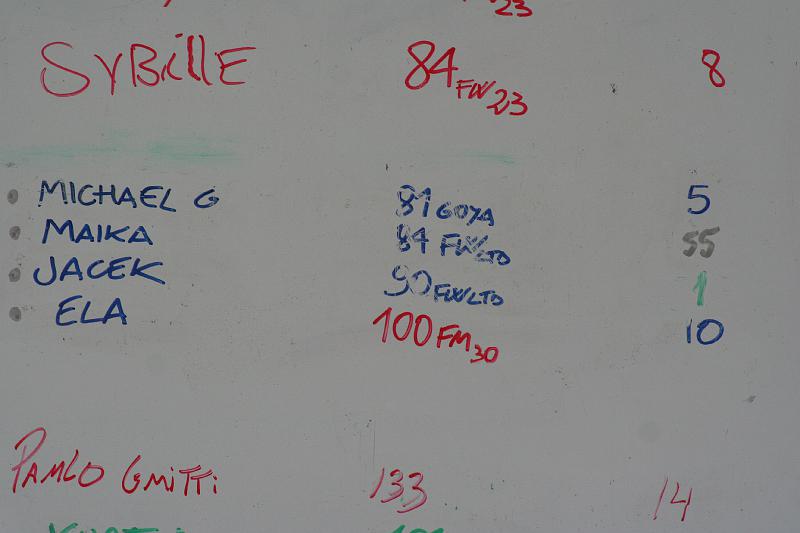 23
SYBILLE 84 FW 23 8
MICHAEL G 81 GOYA 5
MAIKA 84 FW LTD 55
JACEK 90 FW LTD 1
ELA 100 FM 30 10
133 14